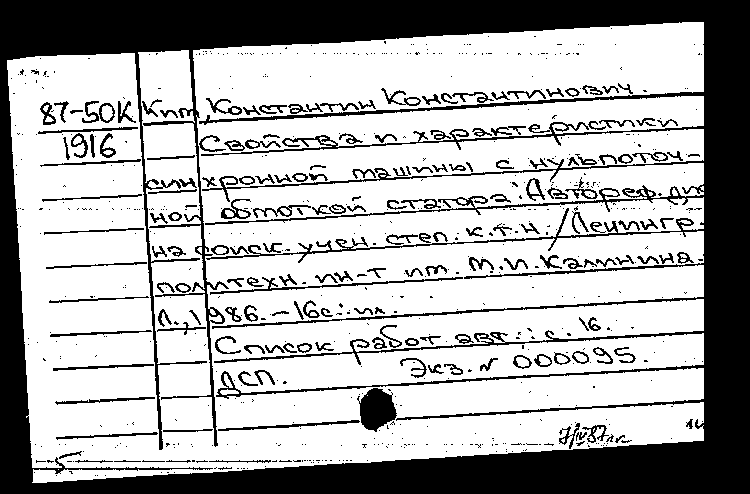 87-50К Ким, Константин Константинович.
1916 Свойства и характеристики
синхронной машины с нульпоточ-
ной обмоткой статора: Автореф. дис
на соиск. учен. степ. к.т.н. / Ленингр.
политехн. ин-т им. М.И. Калинина.-
Л., 1986. - 16с.: ил.
Список работ авт.: с. 16.
ДСП. Экз. № 000095.
5